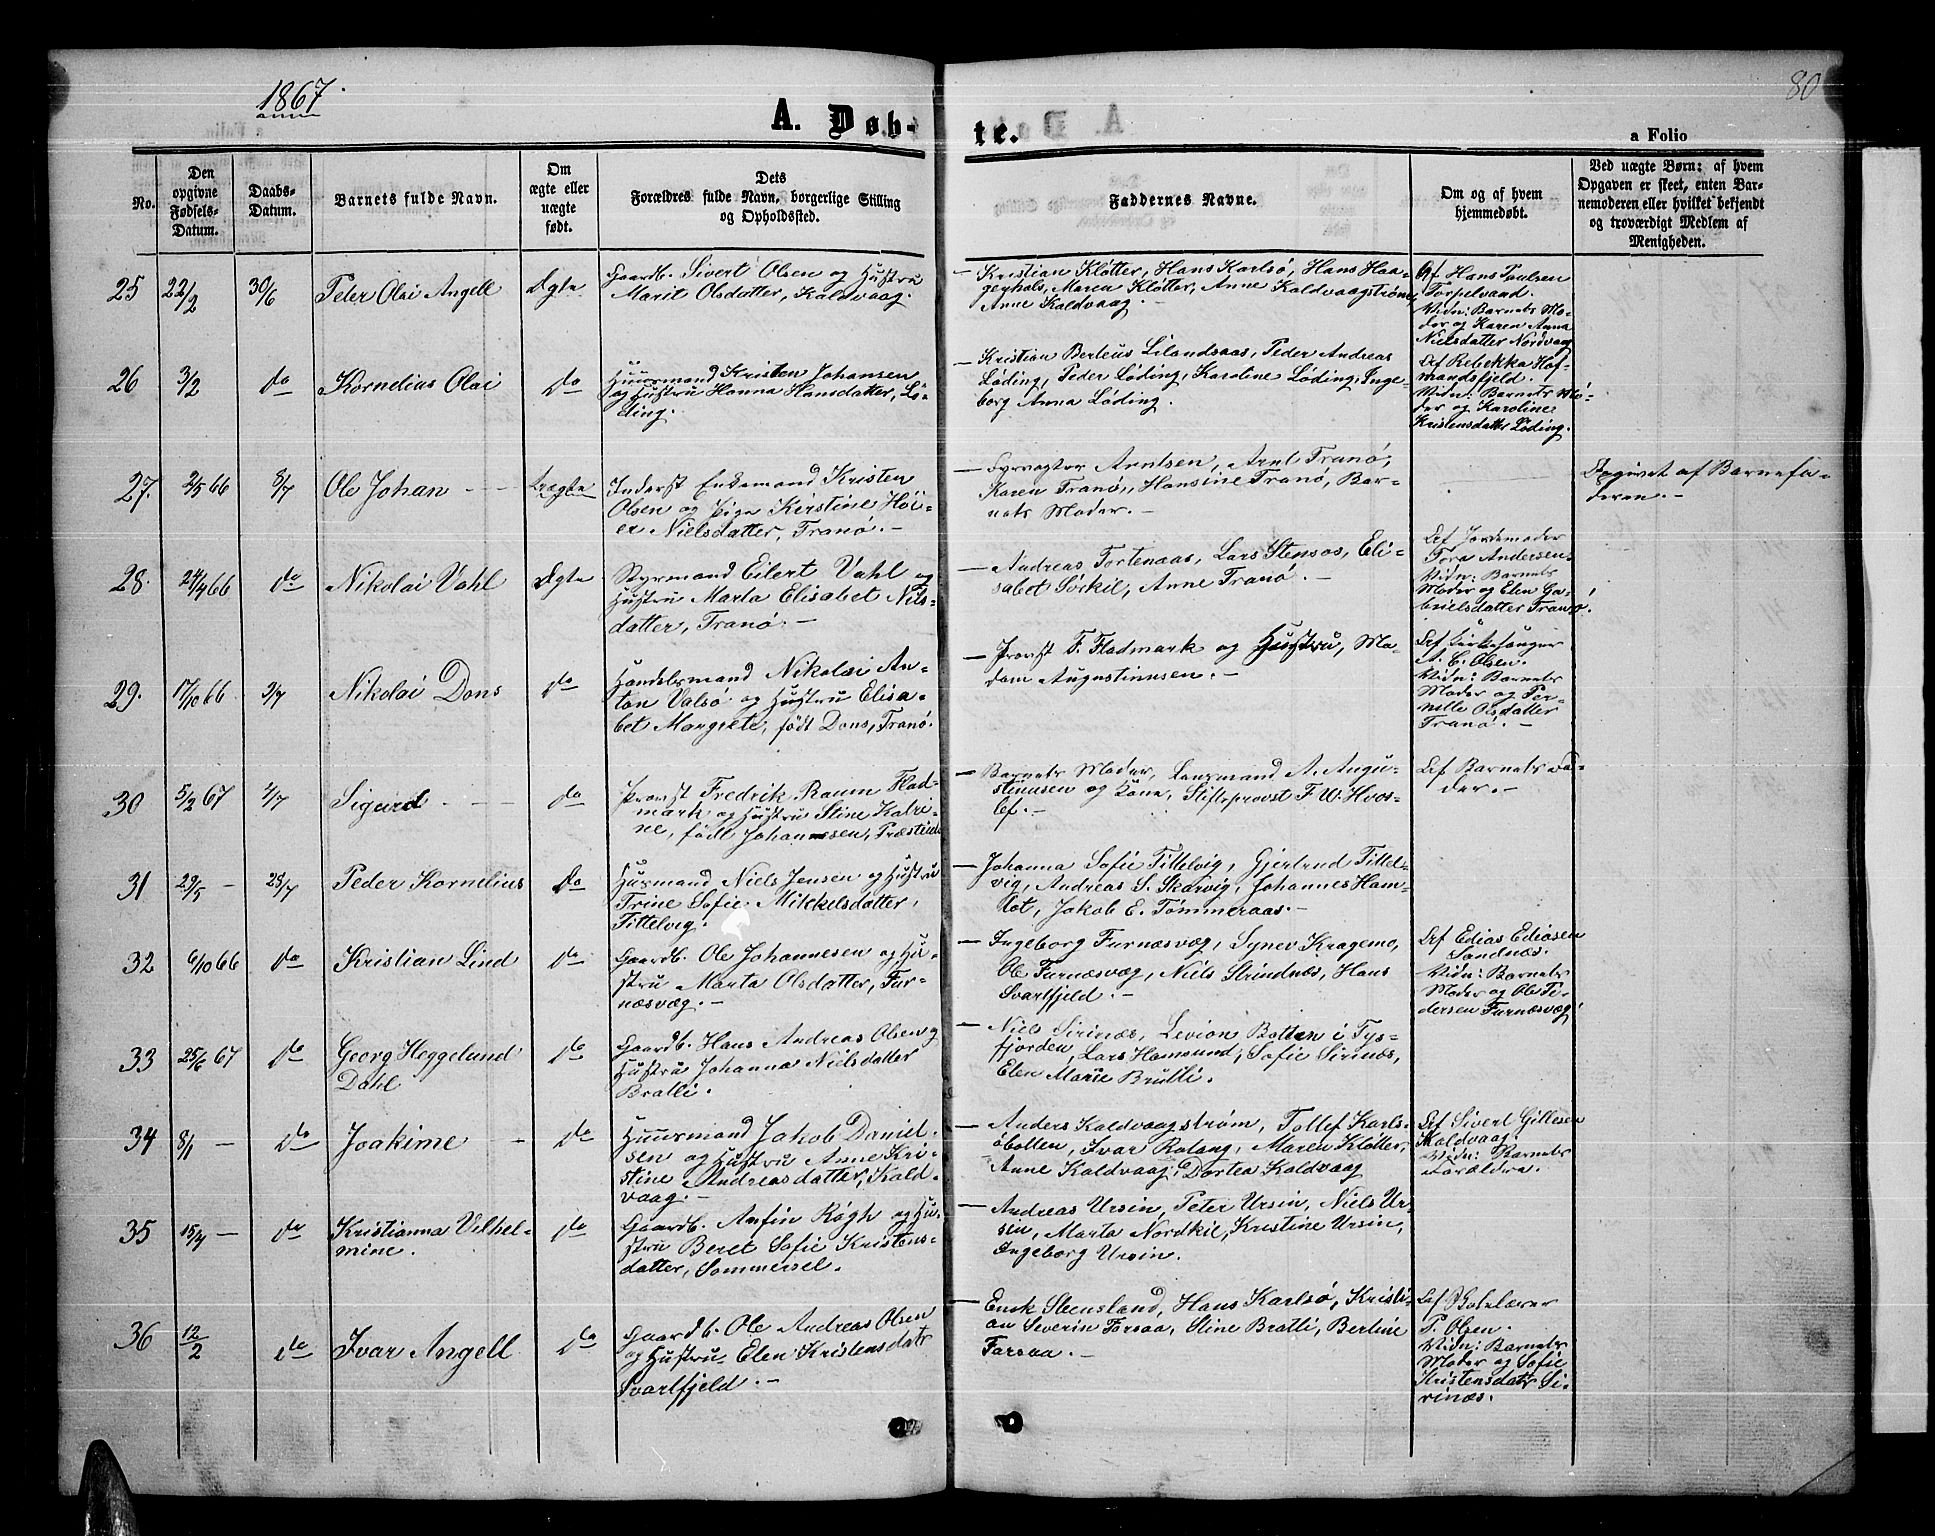 1867.
anno
80
A. Døb-
te.
a Folio
No.
Den
opgivne
Fødsels-
Datum.
Daabs-
Datum.
Barnets fulde Navn.
Om
ægte eller
uægte
født.
Dets
Forældres fulde Navn, borgerlige Stilling
og Opholdssted.
Faddernes Navne.
Om og af hvem
hjemmedøbt.
Ved uægte Børn: af hvem
Opgaven er skeet, enten Bar-
nemoderen eller hvilket bekjendt
og troværdigt Medlem af
Menigheden.
25 22/2 30/6 Peter Olai Angell Ægte
Gaardb. Sivert Olsen og Hustru
Marit Olsdatter, Kaldvaag.
— Kristian Kløtter, Hans Karlsø, Hans Haa-
geyhals, Maren Kløtter, Anne Kaldvaagstrøm,
Anne Kaldvaag. —
Af Hans Poulsen
Torpelvand.
Vidn: Barnets Mo-
der og Karen Anna
Nielsdatter Nordvaag
26 3/2 do Kornelius Olai do
Huusmand Kristen Johansen
og Hustru Hanna Hansdatter, Lø-
ding.
— Kristian Berteus Lilandsaas, Peder Andreas
Løding, Peder Løding, Karoline Løding, Inge-
borg Anna Løding.
Af Rebekka Hof-
mandsfjeld.
Vidn: Barnets Mo-
der og Karoline
Kristensdatter Løding.
27. 2/5 66 3/7 Ole Johan — — Uægte
Inderst Enkemand Kristen
Olsen og Pige Kirstine Høi-
er Nielsdatter, Tranø. —
— Fyrvogter Arntsen, Arnt Tranø,
Karen Tranø, Hansine Tranø, Bar-
nets Moder. —
Opgivet af Barnefa-
deren. —
28. 24/4 66 do Nikolai Vahl Ægte
Styrmand Eilert Vahl og
Hustru Marta Elisabet Nils-
datter, Tranø. —
— Andreas Fortenaas, Lars Stensos, Eli-
sabet Sørkil, Anne Tranø. —
Af Jordemoder
Tora Andersen
Vidn: Barnets
Moder og Elen Ga-
brielsdatter Tranø.
29. 17/10 66 3/7 Nikolai Dons do
Handelsmand Nikolai An-
ton Valsø og Hustru Elisa-
bet Margrete, født Dons, Tranø.
— Provst F. Fladmark og Hustru, Ma-
dam Augustinusen. —
Af Kirkesanger
A. C. Olsen.
Vidn: Barnets
Moder og Per-
nille Olsdatter
Tranø. —
30 5/2 67 7/7 Sigurd — — do
Provst Fredrik Raum Flad-
mark og Hustru Stine Katri-
ne, født Johannesen, Præsteide
— Barnets Moder, Lensmand A. Augu-
stinusen og Kone, Stiftsprovst F. W. Hvos-
lef. —
Af Barnets Fa-
der. —
31 29/5 — 28/7 Peder Kornelius do
Husmand Niels Jensen og Hustru
Trine Sofie Mikkelsdatter,
Tittelvig. —
— Johanna Sofie Tittelvig, Gjertrud Tittel-
vig, Andreas S. Skarvig, Johannes Ham-
lot, Jakob E. Tømmeraas. —
32 6/10 66 do Kristian Lind do
Gaardb. Ole Johannesen og Hu-
stru Marta Olsdatter, Fur-
næsvæg. —
— Ingeborg Furnæsvæg, Synev Kragemo,
Ole Furnæsvæg, Niels Strindnæs, Hans
Svartfjeld. —
Af Edias Ediasen
Sandnæs.
Vidn: Barnets
Moder og Ole Pe-
dersen Furnæsvæg
33 25/6 67 do Georg Heggelund
Dahl do
Gaardb. Hans Andreas Olsen og
Hustru Johanna Nielsdatter
Bratli.
— Niels Sirinæs, Levion Botten i Tys-
fjorden, Lars Hamsund, Sofie Sirinæs,
Elen Marie Bratli.
34 8/1 — do Joakime — do
Huusmand Jakob Daniel-
sen og Hustru Anne Kri-
stine Andreasdatter, Kald-
vaag. —
— Anders Kaldvaagstrøm, Tollef Karls-
øbotten, Ivar Rotang, Maren Kløtter,
Anne Kaldvaag, Dortea Kaldvaag
Af Sivert Gillesen
Kaldvaag.
Vidn: Barnets
Forældre.
35 15/4 — do Kristianna Vilhel-
mine. do
Gaardb. Anfin Røgh og Hu-
stru Beret Sofie Kristens-
datter, Sommersel.
— Andreas Ursin, Peter Ursin, Niels Ur-
sin, Marta Nordkil, Kristine Ursin,
Ingeborg Ursin.
36 12/2 do Ivar Angell do
Gaardb. Ole Andreas Olsen
og Hustru Elen Kristensdatr
Svartfjeld. —
— Enok Steensland, Hans Karlsø, Kristi-
an Severin Forsaa, Stine Bratli, Berline
Forsaa. —
Af
P. Olsen.
Vidn: Barnets
Moder og Sofie
Kristensdatr Si-
rinæs.